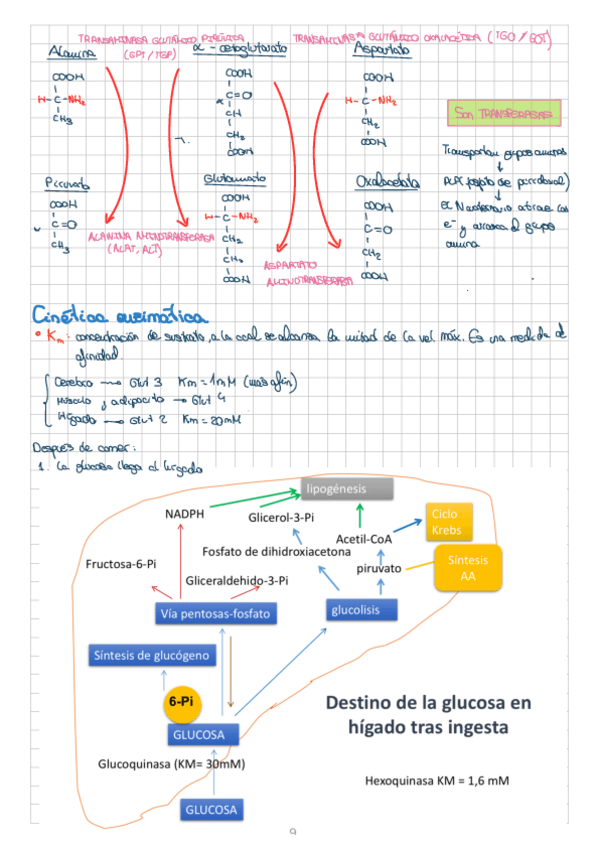 TRANSAMINASA GLUTÁMICO PIRÚVICA (GPT / TGP)
TRANSAMINASA GLUTÁMICO OXALACÉTICA (TGO / GOT)
Alanina
α - cetoglutarato
Aspartato
COOH
H - C - NH₂
CH₃
COOH
C = O
CH
CH₂
COOH
COOH
H - C - NH₂
CH₂
COOH
Son TRANSFERASAS
Transportan grupos aminos
PLP (fosfato de piridoxal)
El N cuaternario atrae los
e⁻ y arranca el grupo
amina
Piruvato
Glutamato
Oxalacetato
COOH
C = O
CH₃
COOH
H - C - NH₂
CH₂
CH₂
COOH
COOH
C = O
CH₂
COOH
ALANINA AMINOTRANSFERASA
(ALAT, ALT)
ASPARTATO
AMINOTRANSFERASA
Cinética enzimática
• Km: concentración de sustrato, a la cual se alcanza la mitad de la vel máx. Es una medida de
afinidad
Cerebro → Glut 3 Km = 1mM (más afín)
Músculo y adipocito → Glut 4
Hígado → Glut 2 Km = 20mM
Después de comer:
1. La glucosa llega al hígado
lipogénesis
NADPH
Glicerol-3-Pi
Ciclo
Krebs
Acetil-CoA
Fosfato de dihidroxiacetona
Fructosa-6-Pi
piruvato
Síntesis
AA
Gliceraldehido-3-Pi
Vía pentosas-fosfato
glucolisis
Síntesis de glucógeno
6-Pi
Destino de la glucosa en
hígado tras ingesta
GLUCOSA
Glucoquinasa (KM= 30mM)
Hexoquinasa KM = 1,6 mM
GLUCOSA
9